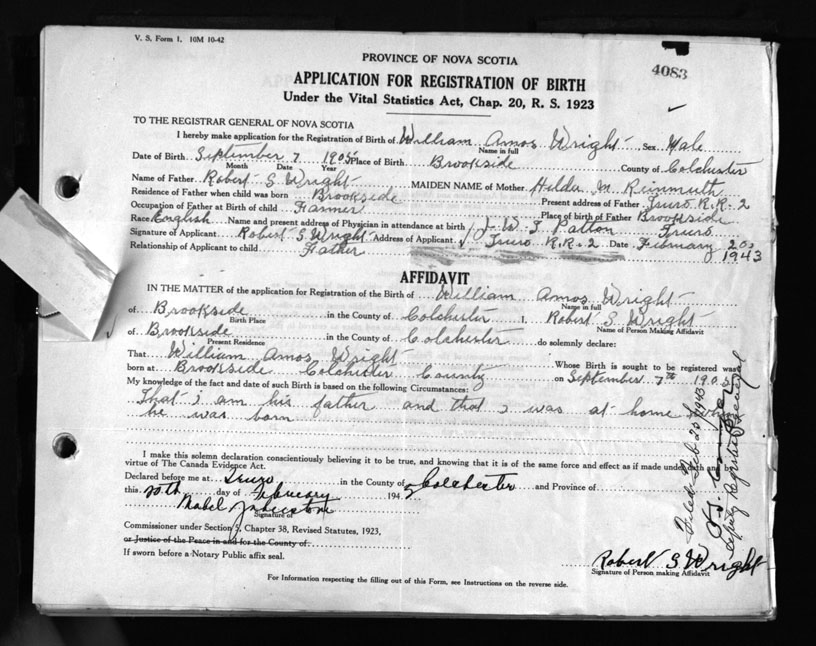 V. S. Form 1. 10M 10-42
4083
PROVINCE OF NOVA SCOTIA
APPLICATION FOR REGISTRATION OF BIRTH
Under the Vital Statistics Act, Chap. 20, R. S. 1923
TO THE REGISTRAR GENERAL OF NOVA SCOTIA
I hereby make application for the Registration of Birth of William Amos Wright Sex Male
Name in full
Date of Birth September 7 1905 Place of Birth Brookside County of Colchester
Month Date Year
Name of Father Robert S Wright MAIDEN NAME of Mother Hilda M.
Residence of Father when child was born Brookside Present address of Father Truro R.R.2
Occupation of Father at Birth of child Farmer Place of birth of Father Brookside
Race English Name and present address of Physician in attendance at birth J. W. T. Patton Truro
Signature of Applicant Robert S. Wright Address of Applicant Truro R.R-2 Date February 20
Relationship of Applicant to child Father 1943
AFFIDAVIT
IN THE MATTER of the application for Registration of the Birth of William Amos Wright
Name in full
of Brookside in the County of Colchester I, Robert S Wright
Birth Place Name of Person Making Affidavit
of Brookside in the County of Colchester do solemnly declare:
Present Residence
That William Amos Wright Whose Birth is sought to be registered was
born at Brookside Colchester County on September 7th 1905
My knowledge of the fact and date of such Birth is based on the following Circumstances:
That i am his father and that i was at home when
he was born
I make this solemn declaration conscientiously believing it to be true, and knowing that it is of the same force and effect as if made under oath and by
virtue of The Canada Evidence Act.
Declared before me at Truro in the County of Colchester and Province of
this 20th day of February 194
Mabel Johnstone
Signature of
Commissioner under Section 5, Chapter 38, Revised Statutes, 1923,
or Justice of the Peace in and for the County of
If sworn before a Notary Public affix seal.
Robert S Wright
Signature of Person making Affidavit
For Information respecting the filling out of this Form, see Instructions on the reverse side.
Filed Feb 23 1943
Deputy Registrar General